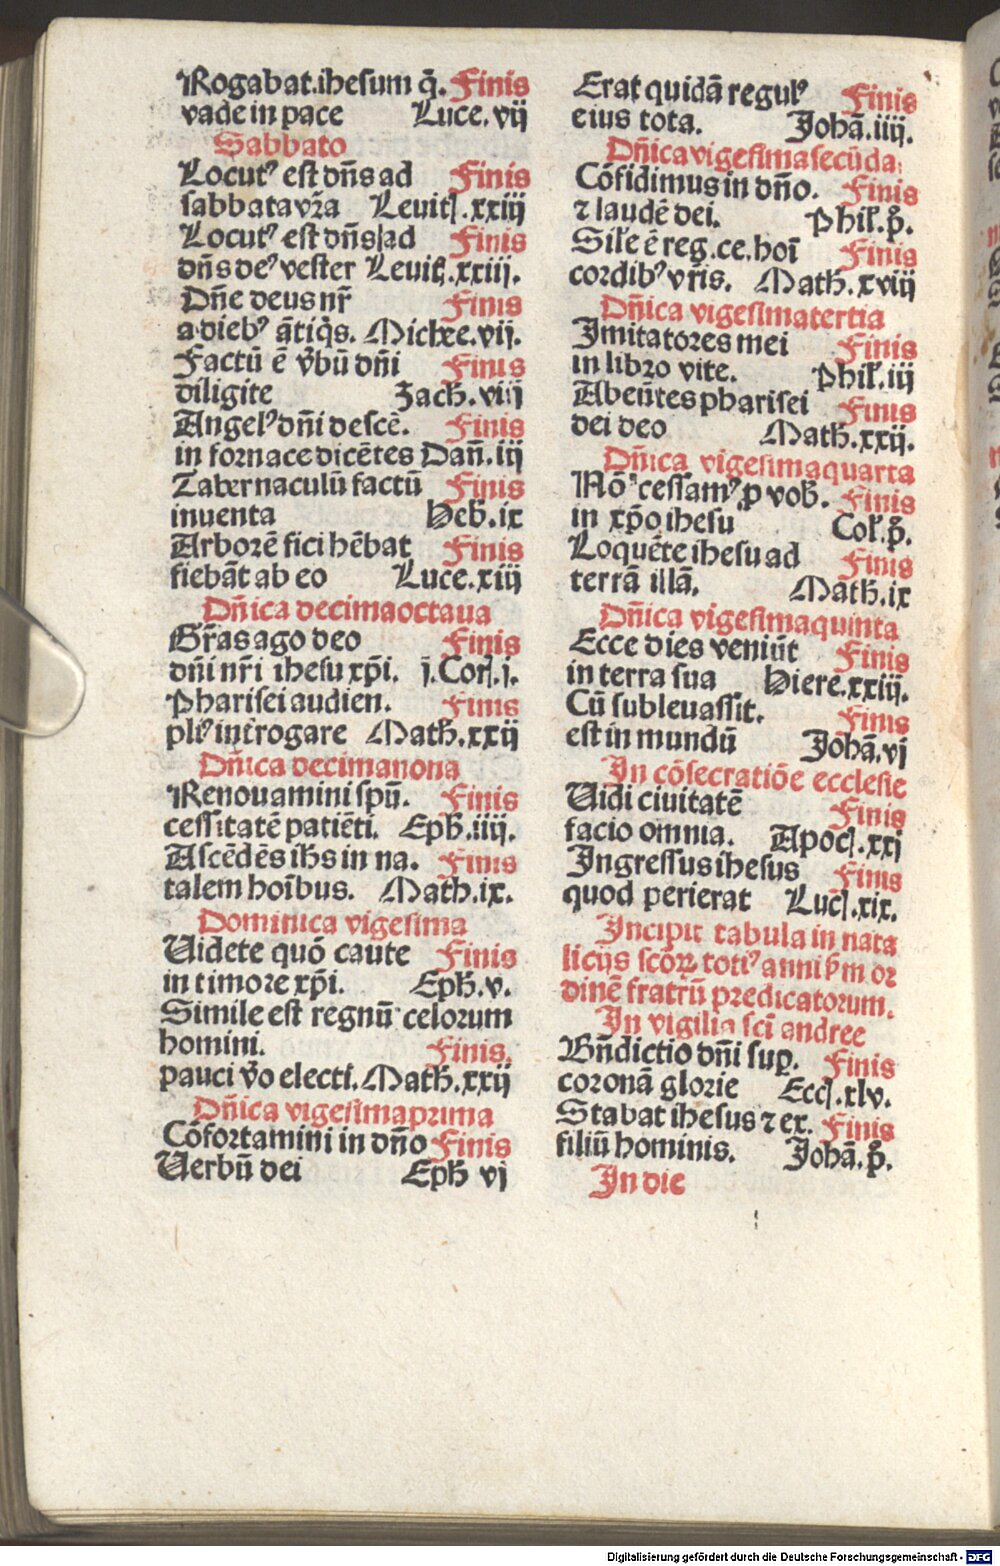 Rogabat.ihesum q̄. Finis
vade in pace Luce.vij
Sabbato
Locutꝰ est dn̄s ad Finis
sabbata vr̄a Leuitꝭ.xxiij
Locutꝰ est dn̄s ad Finis
dn̄s deꝰ vester Leuitꝭ.xxiij.
Dn̄e deus nr̄ Finis
a diebꝰ ātiq̄s. Michee.vij.
Factū ē v̄bū dn̄i Finis
diligite Zach̄.viij
Angelꝰ dn̄i descē. Finis
in fornace dicētes Dan̄.iij
Tabernaculū factū Finis
inuenta Heb̄.ix
Arborē fici hēbat Finis
fiebāt ab eo Luce.xiij
Dn̄ica decimaoctaua
Gr̄as ago deo Finis
dn̄i nr̄i ihesu xp̄i. j.Corꝭ.j.
Pharisei audien. Finis
plꝰ int̄rogare Math̄.xxij
Dn̄ica decimanona
Renouamini spū. Finis
cessitatē patiēti. Eph̄.iiij.
Ascēdēs ih̄s in na. Finis
talem hoībus. Math̄.ix.
Dominica vigesima
Uidete quō caute Finis
in timore xp̄i. Eph̄.v.
Simile est regnū celorum
homini. Finis.
pauci v̄o electi. Math̄.xxij
Dn̄ica vigesimaprima
Cōfortamini in dn̄o Finis
Uerbū dei Eph̄ vj
Erat quidā regulꝰ Finis
eius tota. Johā.iiij.
Dn̄ica vigesimasecūda:
Cōfidimus in dn̄o. Finis
⁊ laudē dei. Phil̄.p̄.
Sil̄e ē reg.ce.hoī Finis
cordibꝰ vr̄is. Math̄.xviij
Dn̄ica vigesimatertia
Imitatores mei Finis
in libro vite. Phil̄.iij
Abeūtes pharisei Finis
dei deo Math̄.xxij.
Dn̄ica vigesimaquarta
Nō cessamꝰ ꝓ vob̄. Finis
in xp̄o ihesu Col̄.p̄.
Loquēte ihesu ad Finis
terrā illā. Math̄.ix
Dn̄ica vigesimaquinta
Ecce dies veniūt Finis
in terra sua Hiere.xxiij.
Cū subleuassit. Finis
est in mundū Johā.vj
In cōsecratiōe ecclesie
Uidi ciuitatē Finis
facio omnia. Apocꝭ.xxj
Ingressus ihesus Finis
quod perierat Lucꝭ.xix.
Incipit tabula in nata
licijs sc̄oꝝ totiꝰ anni ẜm or
dinē fratrū predicatorum.
In vigilia sc̄i andree
Bn̄dictio dn̄i suꝑ. Finis
coronā glorie Eccꝭ.xlv.
Stabat ihesus ⁊ ex. Finis
filiū hominis. Johā.p̄.
In die
Digitalisierung gefördert durch die Deutsche Forschungsgemeinschaft - DFG